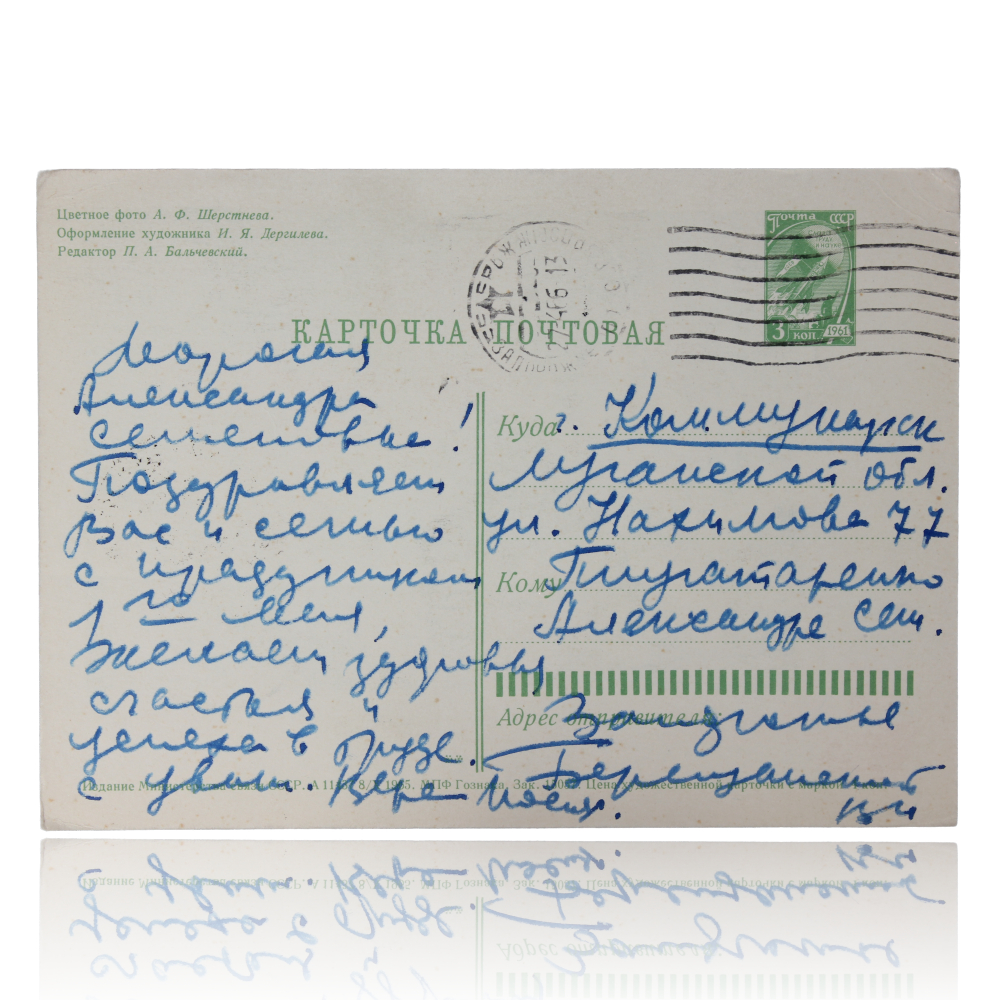 Цветное фото А. Ф. Шерстнева.
Оформление художника И. Я. Дергилева.
Редактор П. А. Бальчевский.
Почта СССР
3 коп
1961
КАРТОЧКА ПОЧТОВАЯ
Дорогая
Александра
Семеновна!
Поздравляем
Вас и семью
с праздником
1го мая,
Желаем здоровья
счастья и
успеха в труде.
с уваж. Вера
Куда г. Коммунарск
Луганской обл.
ул. Нахимова 77
Кому
Александре Сем.
Адрес отправителя:
Запорожье
Издание Министерства связи СССР. МПФ Гознака, Зак. Цена художественной карточки с маркой